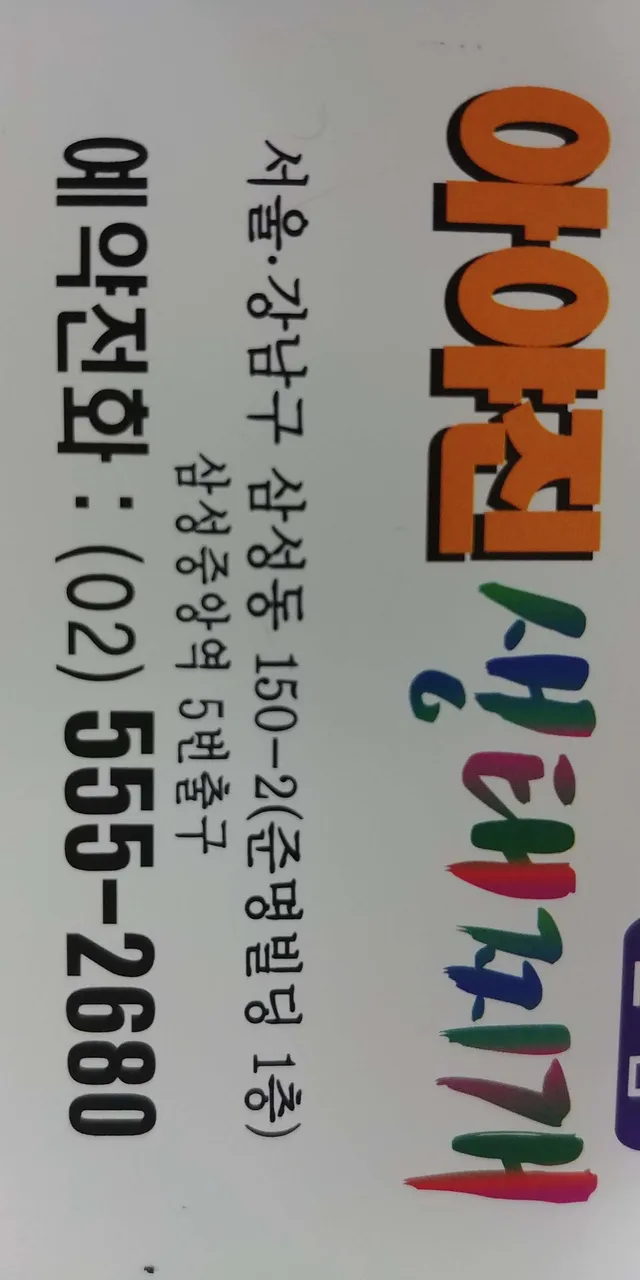 아야진 생태찌개
서울·강남구 삼성동 150-2(준명빌딩 1층)
삼성중앙역 5번출구
예약전화 : (02) 555-2680